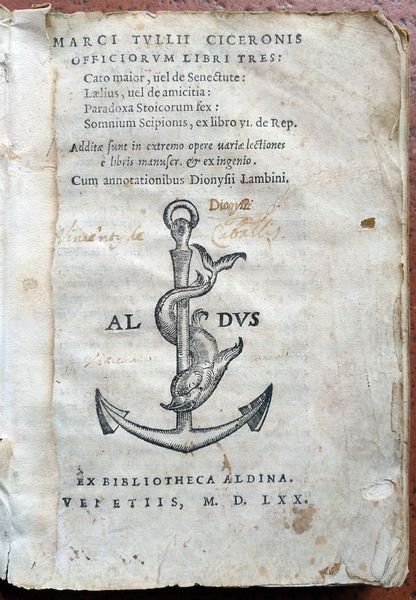 MARCI TVLLII CICERONIS
OFFICIORVM LIBRI TRES:
Cato maior, uel de Senectute:
Lælius, uel de amicitia:
Paradoxa Stoicorum ſex:
Somnium Scipionis, ex libro VI. de Rep.
Additæ ſunt in extremo opere uariæ lectiones
è libris manuſcr. & ex ingenio.
Cum annotationibus Dionyſii Lambini.
Dionysii
de Ceballis
AL DVS
EX BIBLIOTHECA ALDINA.
VENETIIS, M. D. LXX.